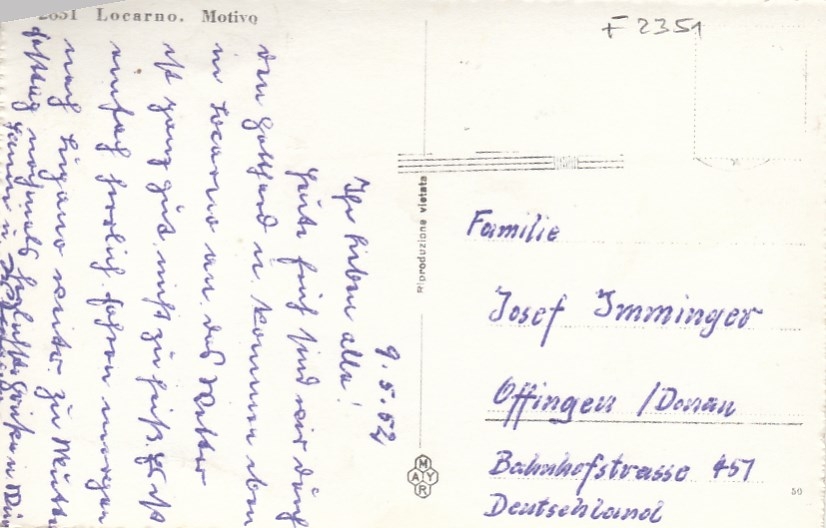 2651 Locarno. Motivo
F 2351
9.5.62
Ihr lieben alle!
Heute früh sind wir durch
den Gotthard u. kommen eben
in Locarno an, das Wetter
ist ganz gut, nicht zu heiß. Es ist
einfach herrlich fahren morgen
nach Lugano weiter. Zu
nochmals herzlichste
Riproduzione vietata
MAYR
Familie
Josef Imminger
Offingen /Donau
Bahnhofstrasse 457
Deutschland
50